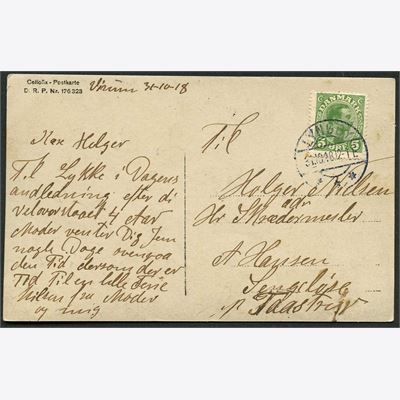 Cellofix - Postkarte
D. R. P. Nr. 176323
Virum 31-10-18
Kære Helger
Til Lykke i Dagens
andledning efter di
veloverstaaet 4 Aar
Moder venter Dig Jem
nogle Dage ovenpaa
den Tid dersom der er
Tid Til en lille
Hilsen fra Moder
og mig
Til
DANMARK
5 ØRE 5
LYNGBY
31.10.18.
Holger Nielsen
Hr Skrædermester
A Hansen
Sengeløse
pr Taastrup